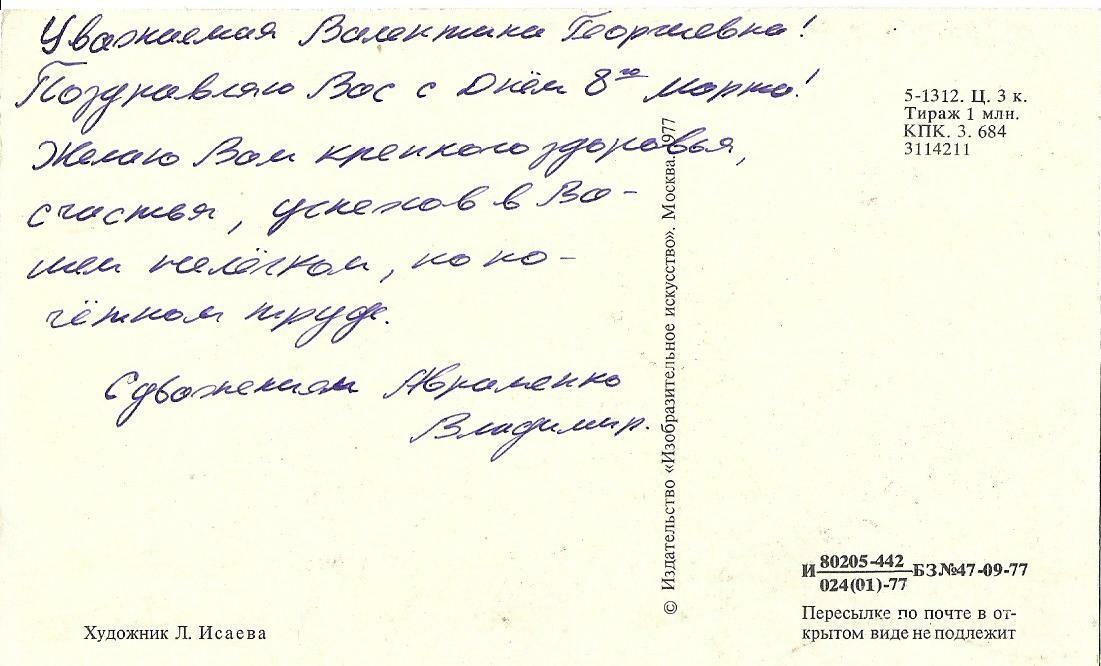 Уважаемая Валентина Георгиевна!
Поздравляю Вас с Днём 8го марта!
Желаю Вам крепкого здоровья,
счастья, успехов в Ва-
шем нелёгком, но по-
чётном труде.
С уважением Авраменко
Владимир.
5-1312. Ц. 3 к.
Тираж 1 млн.
КПК. З. 684
3114211
© Издательство «Изобразительное искусство». Москва. 1977
И 80205-442 БЗ№47-09-77
024(01)-77
Пересылке по почте в от-
крытом виде не подлежит
Художник Л. Исаева